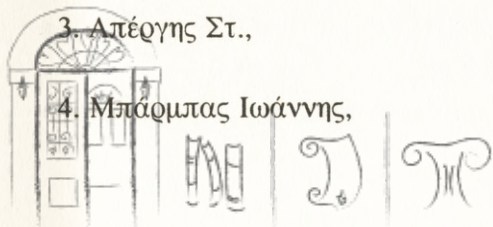 3. Απέργης Στ.,
4. Μπάρμπας Ιωάννης,